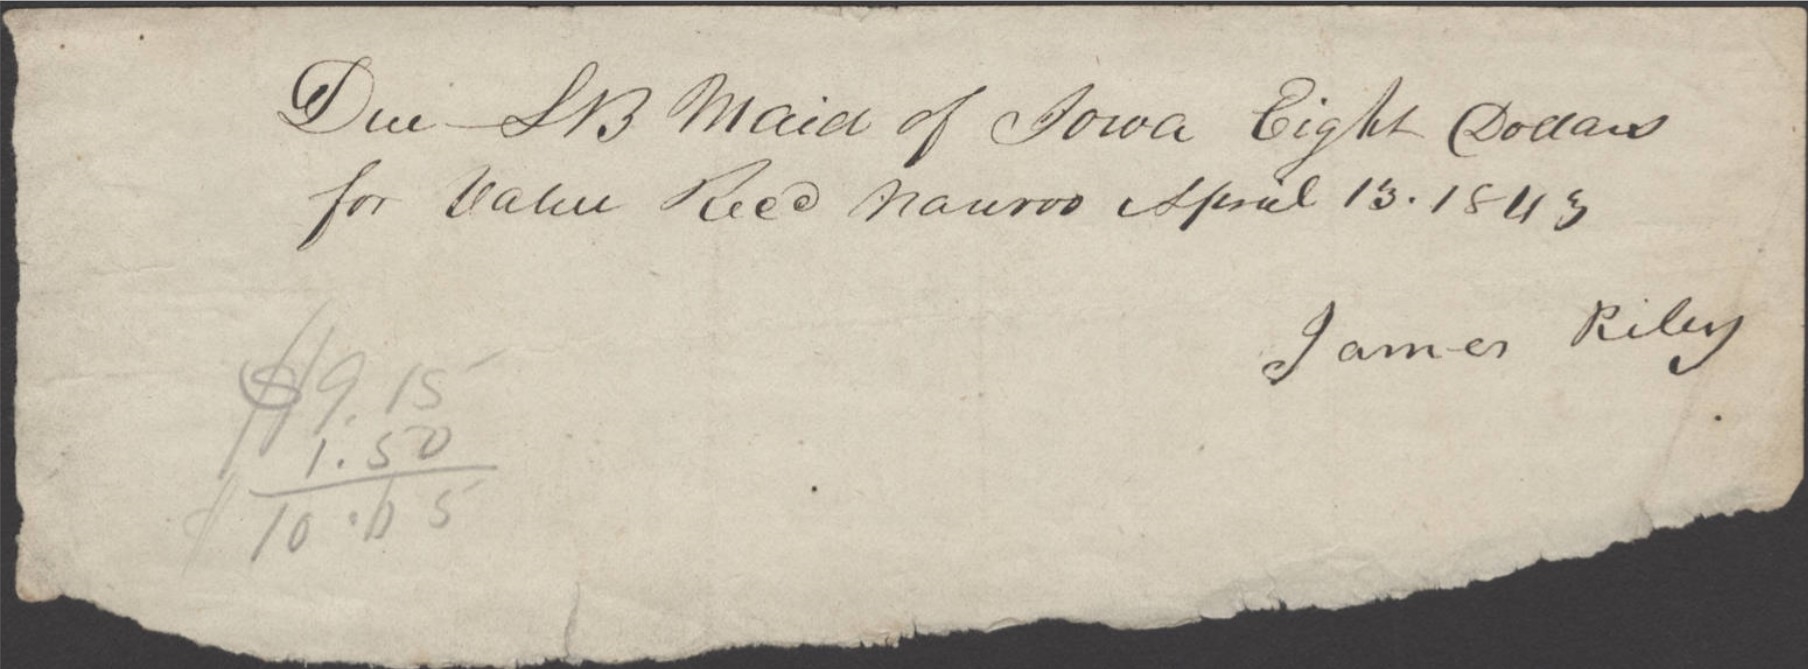 Due S B Maid of Iowa Eight Dollars
for Value Recd Nauvoo April 13. 1843
James Riley
$9.15
1.50
10.65